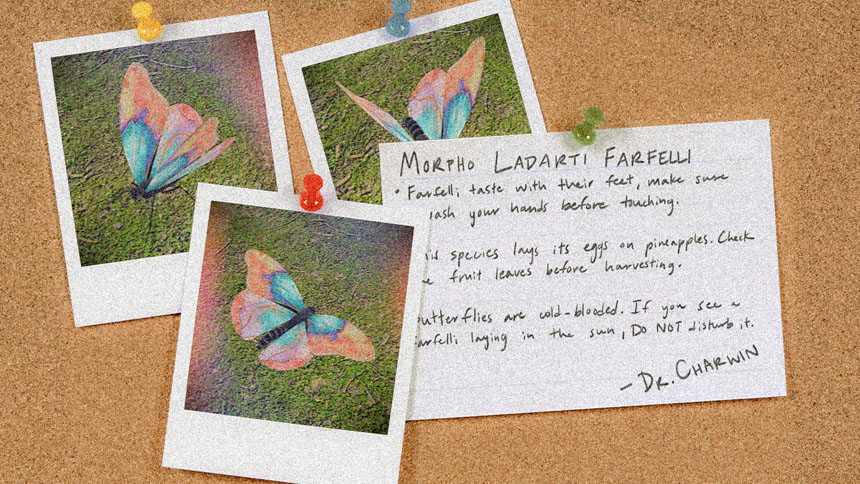 MORPHO LADARTI FARFELLI
• Farfelli taste with their feet, make sure
your hands before touching.
species lays its eggs on pineapples. Check
fruit leaves before harvesting.
are cold-blooded. If you see a
laying in the sun, DO NOT disturb it.
- DR. CHARWIN